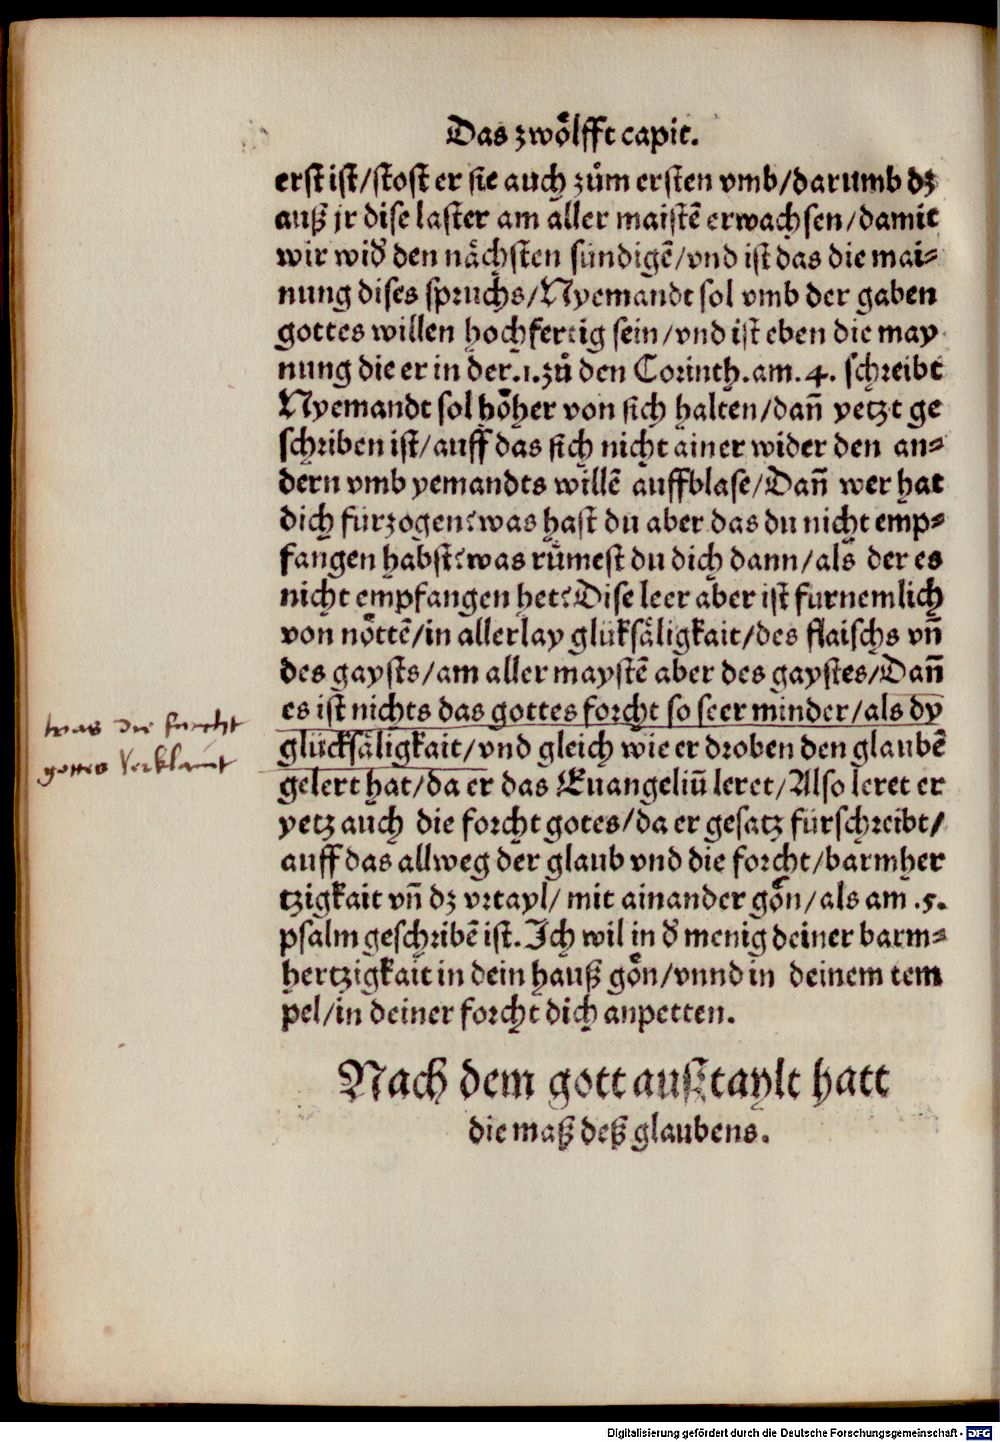 Das zwoͤlfft capit.
erst ist/stost er sie auch zům ersten vmb/darumb dz
auß jr dise laster am aller maistē erwachsen/damit
wir wid̕ den naͤchsten sündigē/vnd ist das die mai⸗
nung dises spruchs/Nyemandt sol vmb der gaben
gottes willen hochfertig sein/vnd ist eben die may
nung die er in der.1.zů den Corinth.am.4. schreibt
Nyemandt sol hoͤher von sich halten/dañ yetzt ge
schriben ist/auff das sich nicht ainer wider den an⸗
dern vmb yemandts willē auffblase/Dañ wer hat
dich fürzogen?was hast du aber das du nicht emp⸗
fangen habst?was růmest du dich dann/als der es
nicht empfangen het?Dise leer aber ist furnemlich
von noͤttē/in allerlay gluksaͤligkait/des flaischs vñ
des gaysts/am aller maystē aber des gaystes/Dañ
es ist nichts das gottes forcht so seer minder/als dy
glücksaͤligkait/vnd gleich wie er droben den glaubē
gelert hat/da er das Euangeliū leret/Also leret er
yetz auch die forcht gotes/da er gesatz fürschreibt/
auff das allweg der glaub vnd die forcht/barmher
tzigkait vñ dz vrtayl/ mit ainander goͤn/als am .5.
psalm geschribē ist. Ich wil in d̕ menig deiner barm⸗
hertzigkait in dein hauß goͤn/vnnd in deinem tem
pel/in deiner forcht dich anpetten.
Nach dem gott ausztaylt hatt
die maß deß glaubens.
was die furcht
gottes
Digitalisierung gefördert durch die Deutsche Forschungsgemeinschaft - DFG